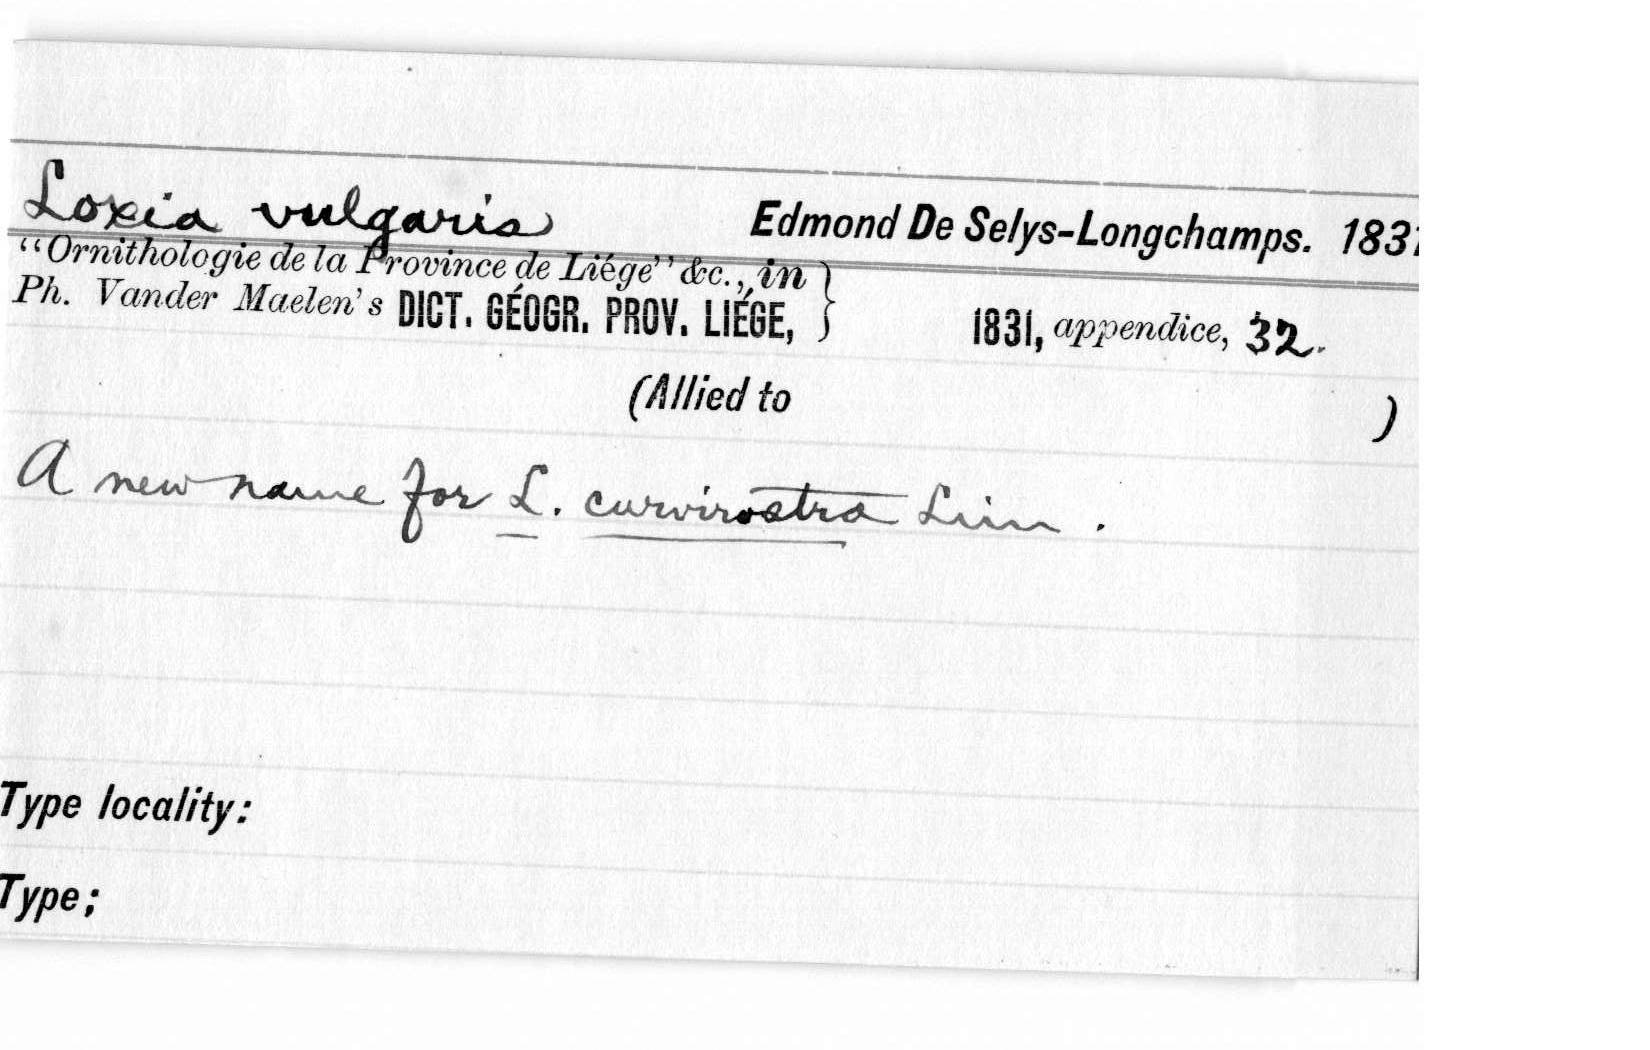 Loxia vulgaris Edmond De Selys-Longchamps. 1831
"Ornithologie de la Province de Liége" &c., in }
Ph. Vander Maelen's DICT. GÉOGR. PROV. LIÉGE, 1831, appendice, 32.
(Allied to )
A new name for L. curvirostra Linn.
Type locality:
Type;